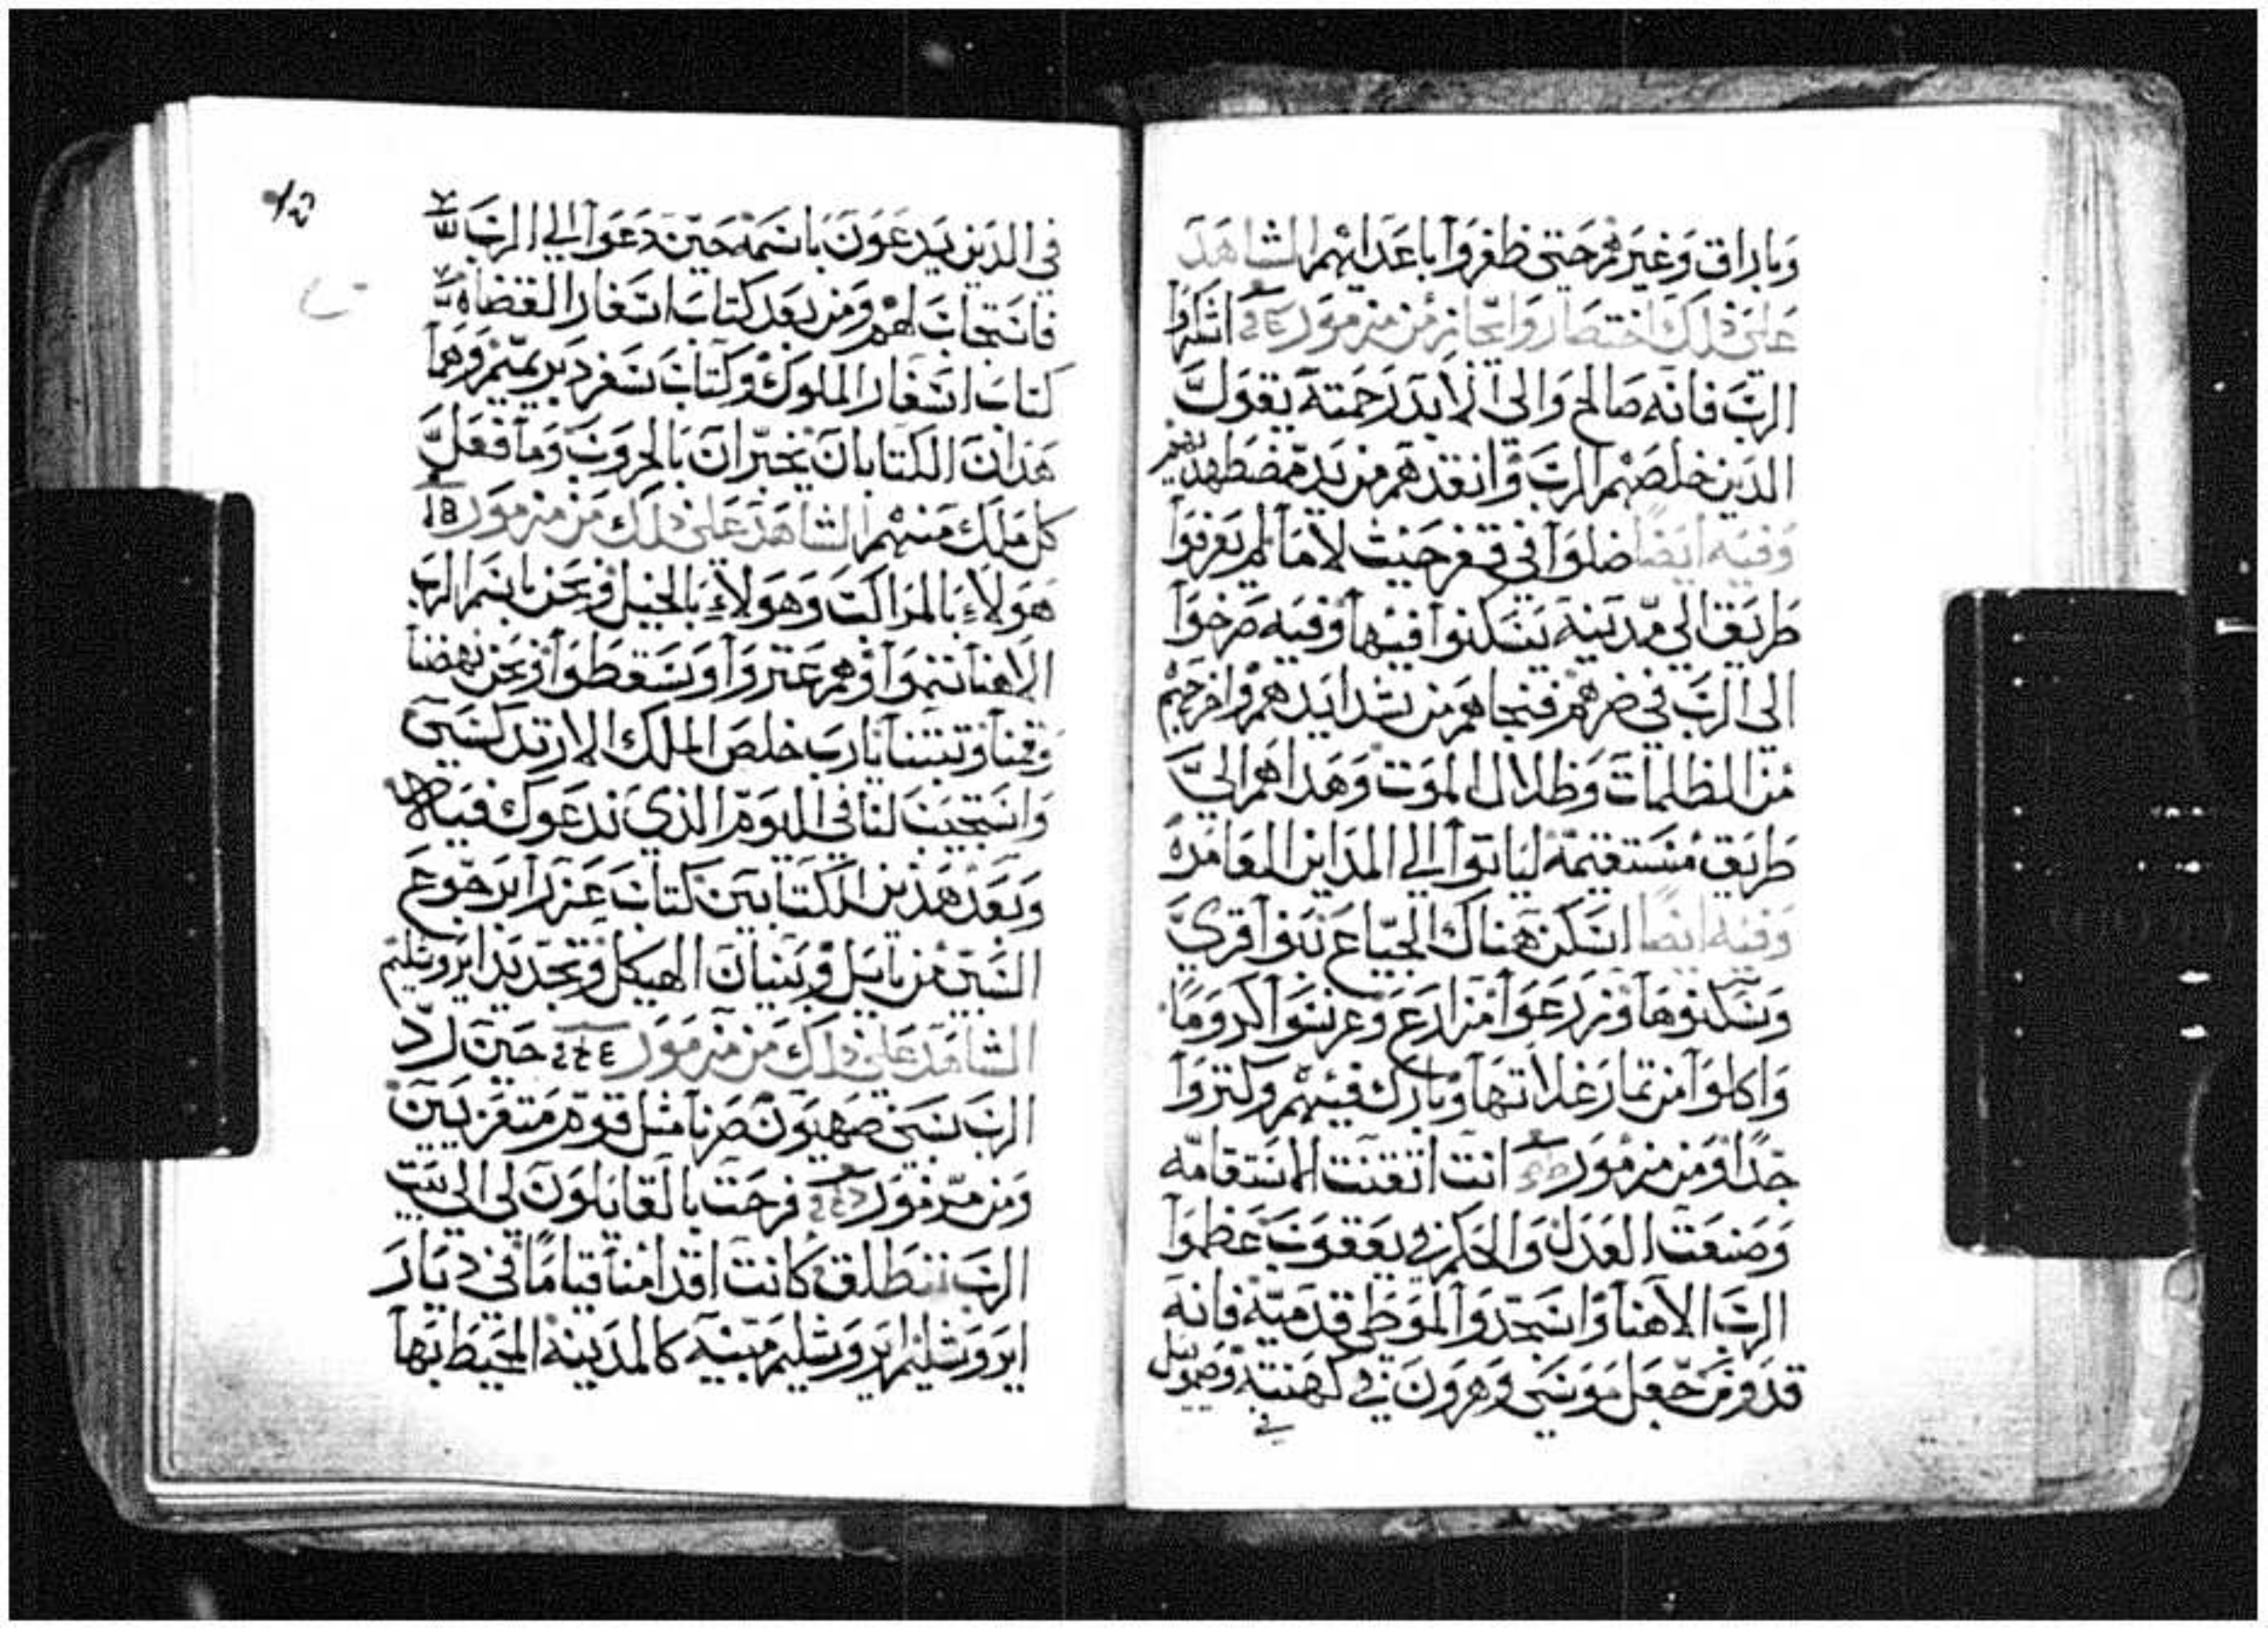 وباراق وغيرهم حتى ظفروا باعدايهم الشاهد
على ذلك اختصار وايجاز من مزمور اشكروا
الرب فانه صالح والى الابد رحمته يقول
الذين خلصهم الرب وانقذهم من يد مضطهديهم
وفيه ايضًا ضلوا في قفر حيث لا ما لم يعرفوا
طريق الي مدينة يسكنوا فيها وفيه صرخوا
الى الرب في ضرهم فنجاهم من شدايدهم واخرجهم
من الظلمات وظلال الموت وهداهم الي
طريق مستقيمة لياتوا الي المداين العامرة
وفيه ايضًا اسكن هناك الجياع بنوا قري
وسكنوها وزرعوا مزارع وغرسوا كرومًا
واكلوا من ثمار غلاتها وبارك فيهم وكتروا
جدًا ومن مزمور انت اتقنت الاستقامه
وصنعت العدل والحكم في يعقوب عظموا
الرب الاهنا واسجدوا لموطي قدميه فانه
قدوس جعل موسى وهرون في كهنته وصموييل
في
في الذين يدعون باسمه حين دعوا الي الرب
فاستجاب لهم ومن بعد كتاب اسفار القضاه
كتاب اسفار الملوك وكتاب سفر دبريميم وهما
هذان الكتابان يخبران بالحروب وما فعل
كل ملك منهم الشاهد على ذلك من مزمور
هولاء بالمراكب وهولاء بالخيل ونحن باسم الرب
الاهنا ننموا وهم عتروا وسقطوا ونحن نهضنا
وقمنا وتبتنا يارب خلص الملك
واستجيب لنا في اليوم الذي ندعوك فيه
وبعد هذين الكتابين كتاب عزرا برجوع
السبي من بابل وبنيان الهيكل وتجديد ايروشليم
الشاهد على ذلك من مزمور حين رد
الرب سبي صهيون صرنا مثل قوم متعزيين
ومن مزمور فرحت بالقايلون لي الي بيت
الرب ننطلق كانت اقدامنا قيامًا في ديار
ايروشليم ايروشليم مبنيه كالمدينة المحيط بها